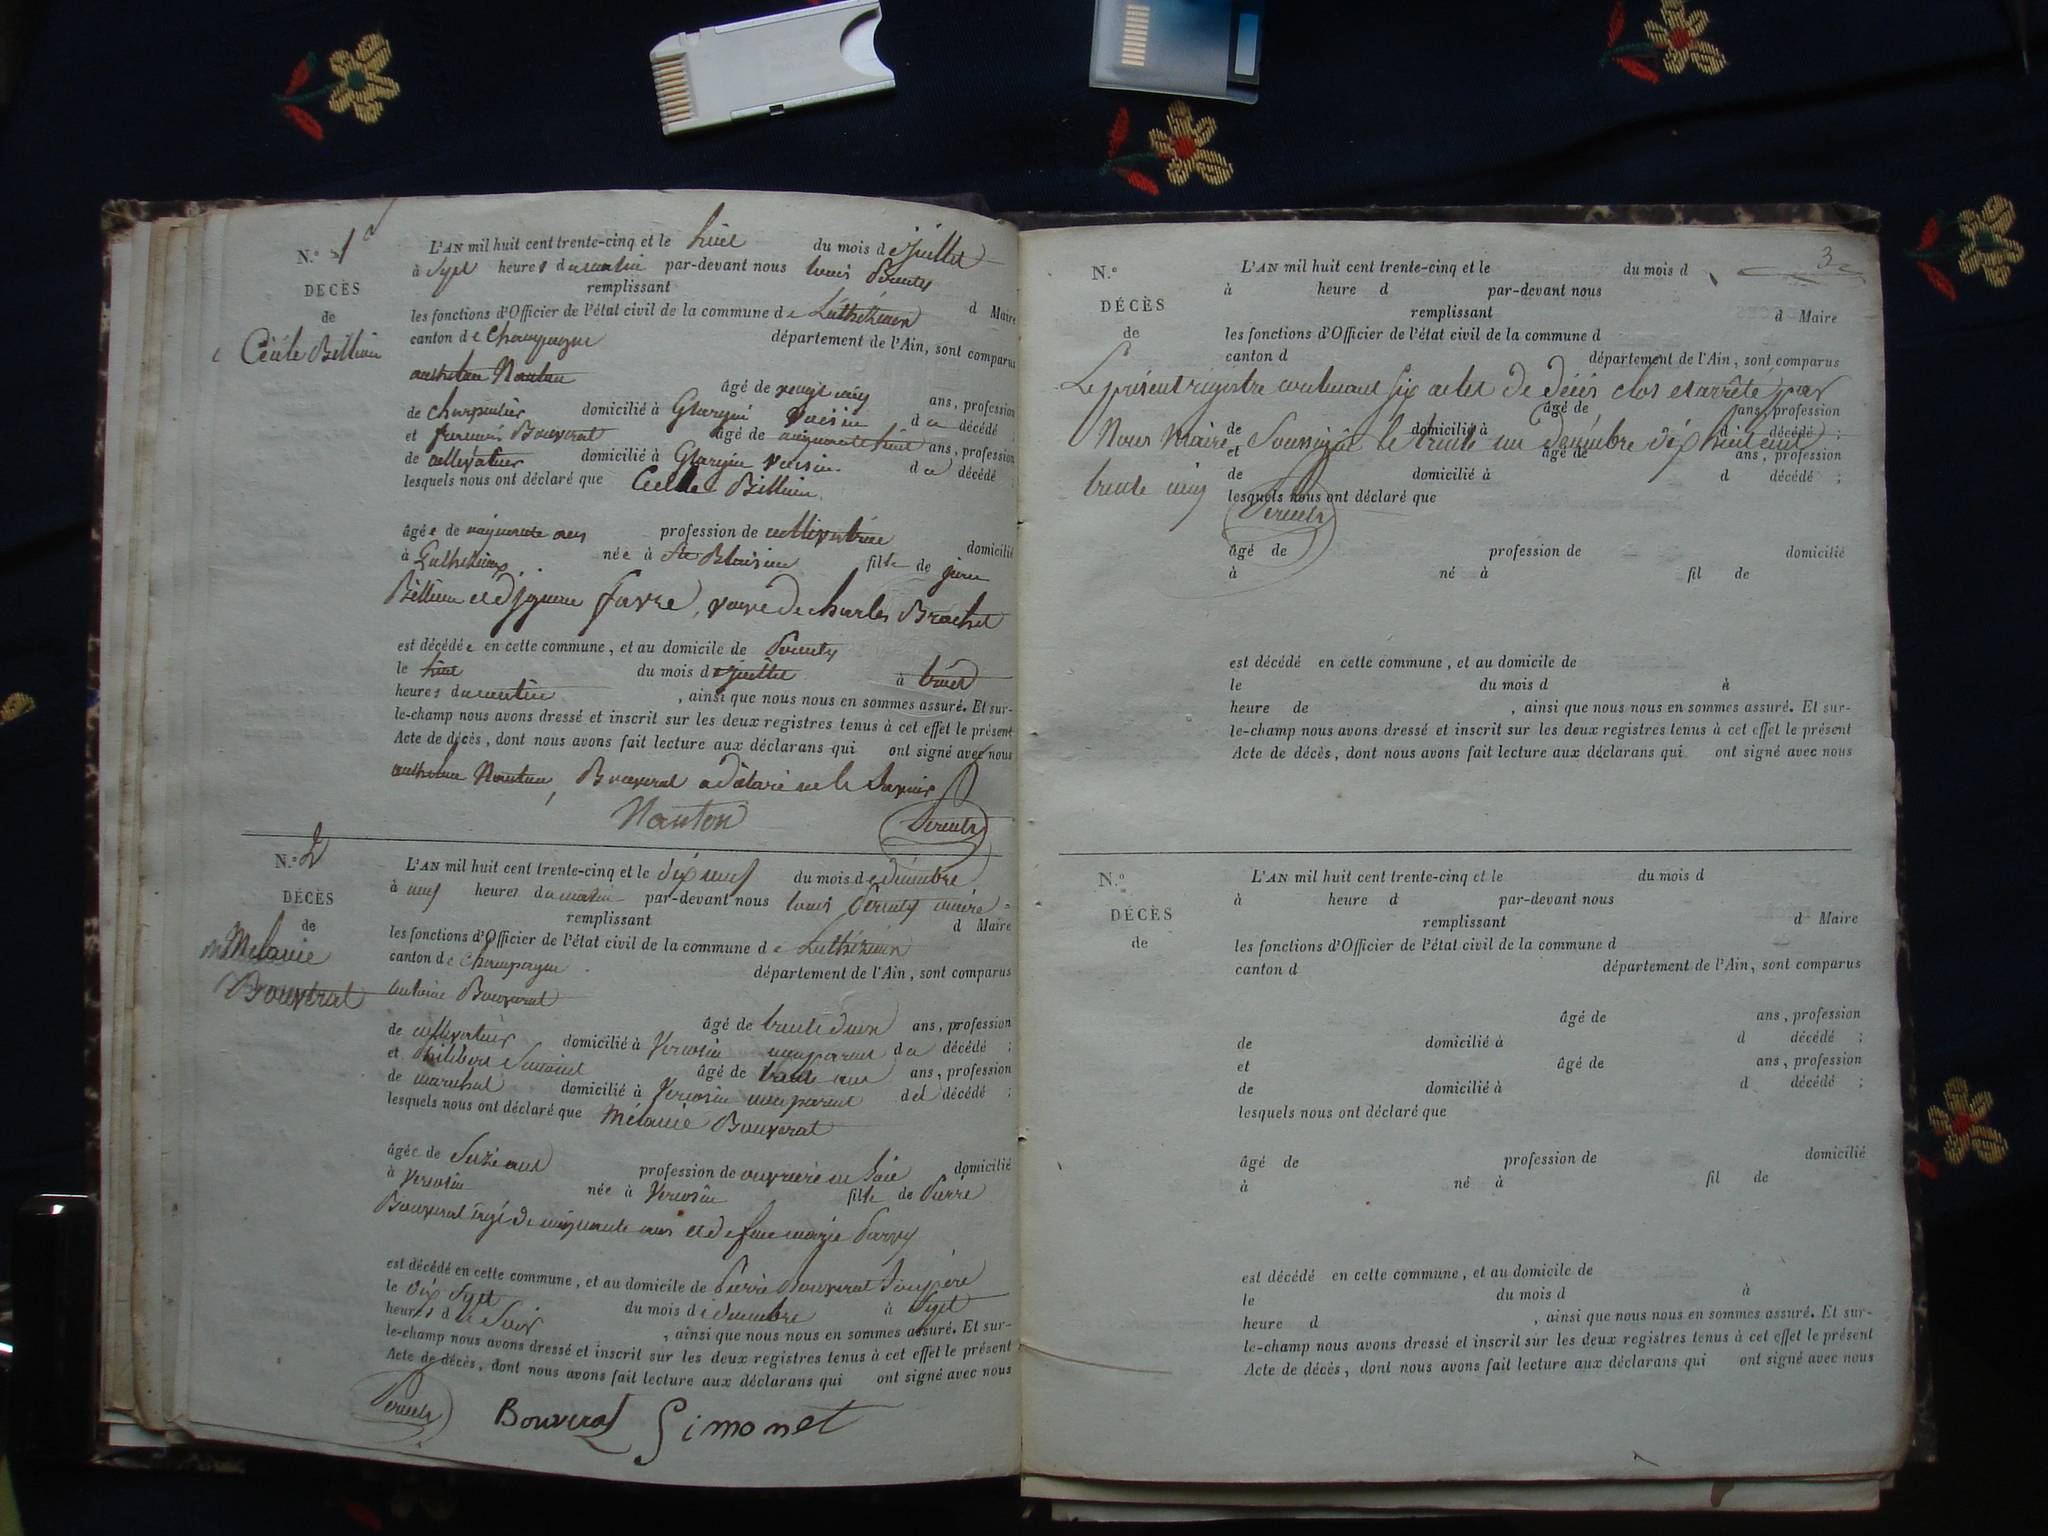 N.º 1
L'AN mil huit cent trente-cinq et le huit du mois de juillet
DÉCÈS
à sept heures du matin par-devant nous Louis
remplissant
de
les fonctions d'Officier de l'état civil de la commune de d Maire
Cécile Billion
canton de Champagne département de l'Ain, sont comparus
Nanton
âgé de vingt cinq ans, profession
de charpentier domicilié à voisin de la décédé ;
et Bouverat âgé de cinquante huit ans, profession
de cultivateur domicilié à voisin de la décédé ;
lesquels nous ont déclaré que Cécile Billion
âgée de cinquante ans profession de cultivatrice domicilié
à née à St Blaise fille de
Billion et de favre, veuve de charles Brachet
est décédée en cette commune, et au domicile de
le huit du mois de juillet à
heures du matin, ainsi que nous nous en sommes assuré. Et sur-
le-champ nous avons dressé et inscrit sur les deux registres tenus à cet effet le présent
Acte de décès, dont nous avons fait lecture aux déclarans qui ont signé avec nous
Nanton, Bouverat a déclaré ne le savoir
Nanton
N.º 2
L'AN mil huit cent trente-cinq et le dix neuf du mois de décembre
DÉCÈS
à neuf heures du matin par-devant nous Louis maire
remplissant
de
d Maire
les fonctions d'Officier de l'état civil de la commune de
Mélanie
Bouverat
canton de Champagne département de l'Ain, sont comparus
antoine Bouverat
âgé de trente deux ans, profession
de cultivateur domicilié à Vercosin non parent de la décédé ;
et Philibert Simonet âgé de trente ans, profession
de maréchal domicilié à Vercosin non parent de la décédé ;
lesquels nous ont déclaré que Mélanie Bouverat
âgée de seize ans profession de ouvrière en soie domicilié
à Vercosin née à Vercosin fille de Pierre
Bouverat âgé de cinquante ans et de marie
est décédé en cette commune, et au domicile de Pierre Bouverat son père
le dix sept du mois de décembre à sept
heures de soir, ainsi que nous nous en sommes assuré. Et sur-
le-champ nous avons dressé et inscrit sur les deux registres tenus à cet effet le présent
Acte de décès, dont nous avons fait lecture aux déclarans qui ont signé avec nous
Bouverat Simonet
3
N.º
L'AN mil huit cent trente-cinq et le du mois d
DÉCÈS
à heure d par-devant nous
remplissant
d Maire
de
les fonctions d'Officier de l'état civil de la commune d
canton d département de l'Ain, sont comparus
Le présent registre contenant six actes de décès clos et arrêté par
âgé de ans, profession
Nous Maire soussigné le trente un décembre dix huit cent
de domicilié à d décédé ;
et âgé de ans, profession
trente cinq
de domicilié à d décédé ;
lesquels nous ont déclaré que
âgé de profession de domicilié
à né à fil de
est décédé en cette commune, et au domicile de
le du mois d à
heure de , ainsi que nous nous en sommes assuré. Et sur-
le-champ nous avons dressé et inscrit sur les deux registres tenus à cet effet le présent
Acte de décès, dont nous avons fait lecture aux déclarans qui ont signé avec nous
N.º
L'AN mil huit cent trente-cinq et le du mois d
DÉCÈS
à heure d par-devant nous
remplissant
d Maire
de
les fonctions d'Officier de l'état civil de la commune d
canton d département de l'Ain, sont comparus
âgé de ans, profession
de domicilié à d décédé ;
et âgé de ans, profession
de domicilié à d décédé ;
lesquels nous ont déclaré que
âgé de profession de domicilié
à né à fil de
est décédé en cette commune, et au domicile de
le du mois d à
heure d , ainsi que nous nous en sommes assuré. Et sur-
le-champ nous avons dressé et inscrit sur les deux registres tenus à cet effet le présent
Acte de décès, dont nous avons fait lecture aux déclarans qui ont signé avec nous